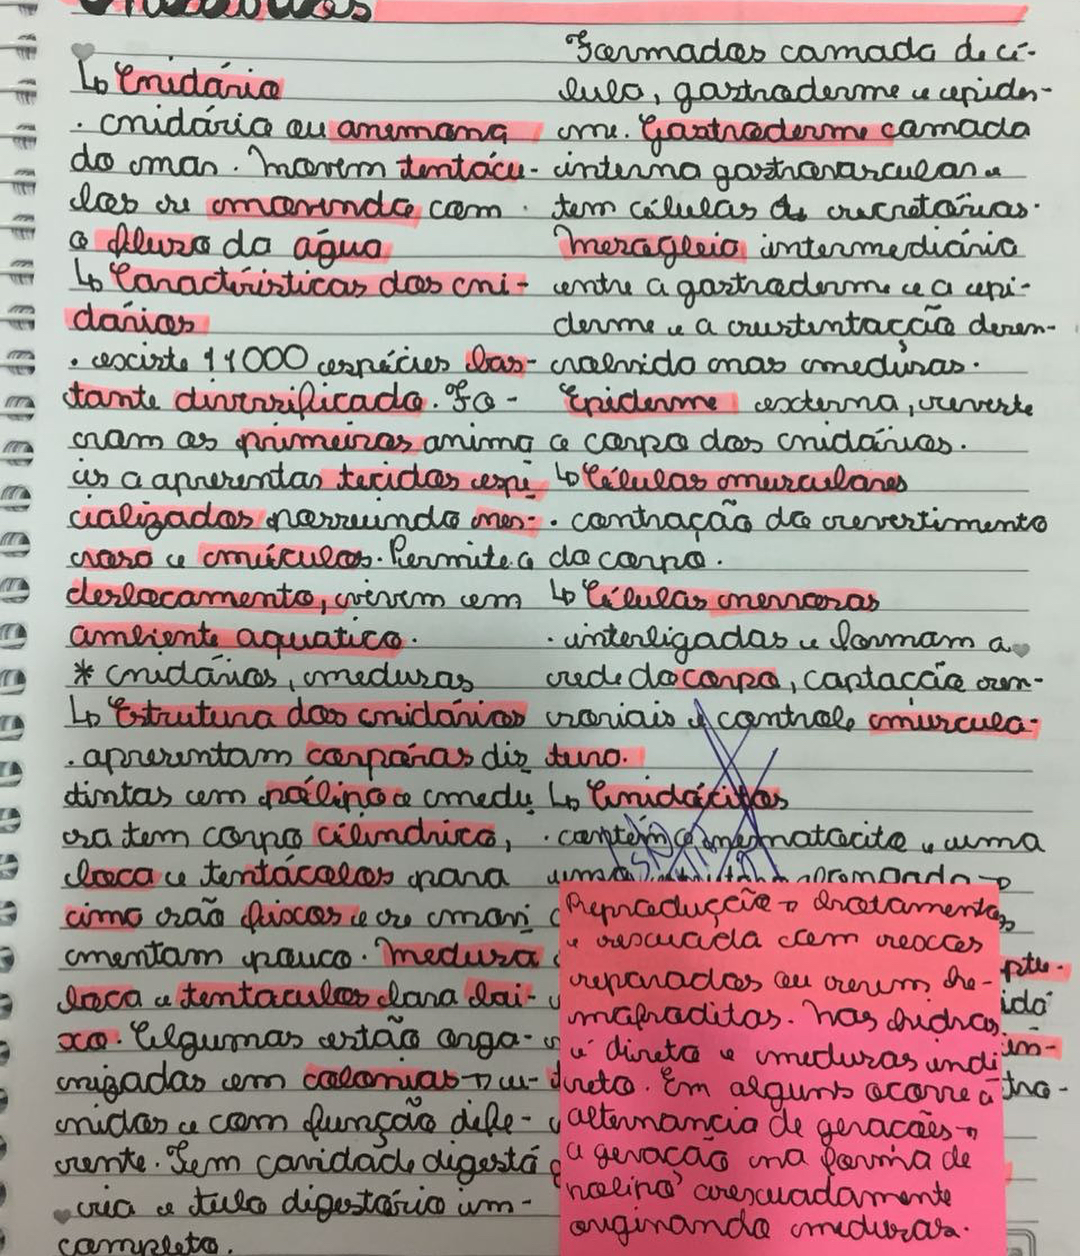 ↳ Cnidária
. cnidária ou anemona
do mar. Movem tentácu-
los se movindo com
o fluxo da água
↳ Caractéristicas dos cni-
dários
. existe 11000 espécies bas-
tante diversificado. Fo-
ram os primeiros anima
is a apresentar tecidos espe
cializados possuindo ner-
voso e músculos. Permite o
deslocamento, vivem em
ambiente aquatico.
* cnidários, medusas
↳ Estrutura dos cnidários
. apresentam corporas dis
tintas em pólipo e medu
sa tem corpo cilíndrico,
boca e tentácolos para
cima são fixos e se movi
mentam pouco. Medusa
boca e tentaculos para bai-
xo. Algumas estão orga-
nizadas em colonias → u-
nidas e com função dife-
rente. Tem cavidade digestó
ria e tubo digestório in-
completo.
Formados camada de cé-
lula, gastroderme e epider-
me. Gastroderme camada
interna gastrovascular e
tem células secretórias.
Mesogleia intermediária
entre a gastroderme e a epi-
derme e a sustentação desen-
volvido nas medusas.
Epiderme externa, reveste
o corpo dos cnidários.
↳ Células musculares
. contração do revertimento
do corpo.
↳ Células nervosas
. interligadas e formam a
rede do corpo, captação sen-
soriais e controle muscula-
turo.
↳ Cnidócitos
. contém o nematocito e uma
uma alongada →
Reprodução → brotamento
e sexuada com sexos
separados ou serem he-
mafroditas. Nas hidras
é direto e medusas indi
reto. Em alguns ocorre a
alternancia de geracões →
a geração na forma de
polipo assexuadamente
originando medusas.